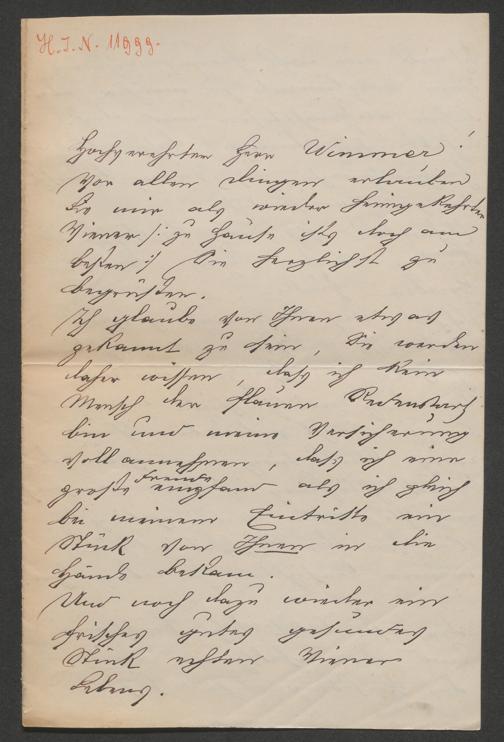 H.I.N. 11999.
Hochverehrter Herr Wimmer!
Vor allen Dingen erlauben
Sie mir als wieder heimgekehrten
Wiener /: zu Hause ists doch am
besten :/ Sie herzlichst zu
begrüßen.
Ich glaube von Ihnen etwas
gekannt zu sein, Sie werden
daher wissen, daß ich kein
Mensch der flauen
bin und meine Versicherung
voll annehmen, daß ich eine
große Freude empfand als ich gleich
bei meinem Eintritte ein
Stück von Ihnen in die
Hände bekam.
Und noch dazu wieder ein
frisches gutes gesundes
Stück echten Wiener
Lebens.